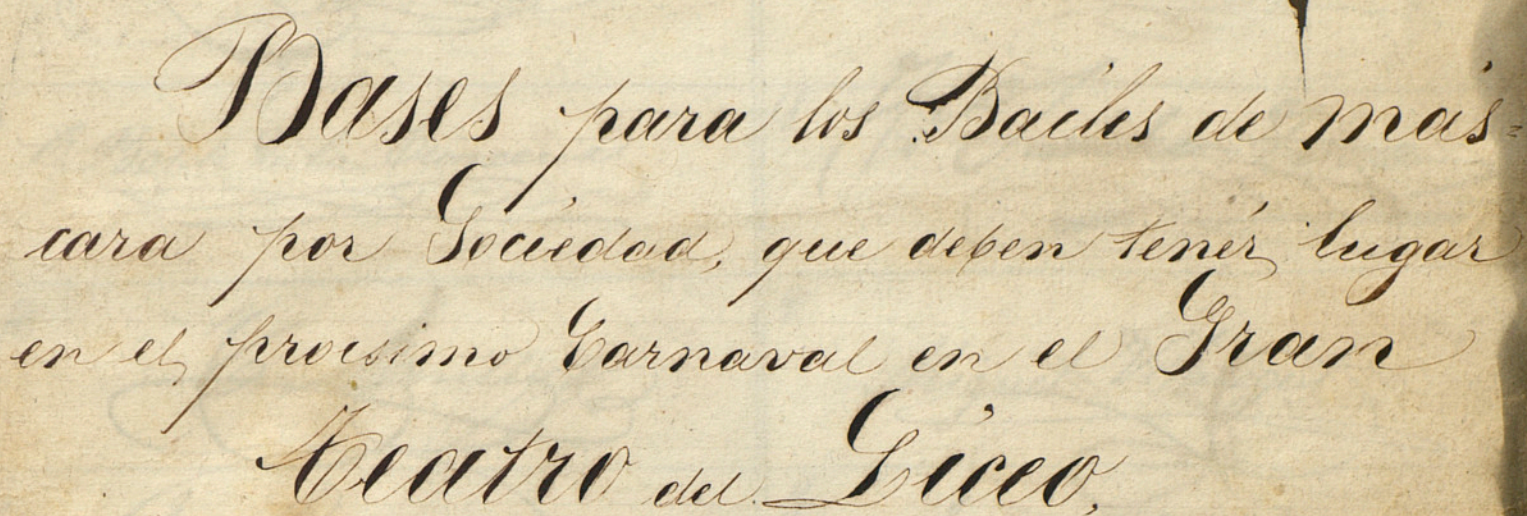 Bases para los Bailes de más=
cara por Sociedad, que deben tenér lugar
en el procsimo Carnaval en el Gran
Teatro del Liceo.